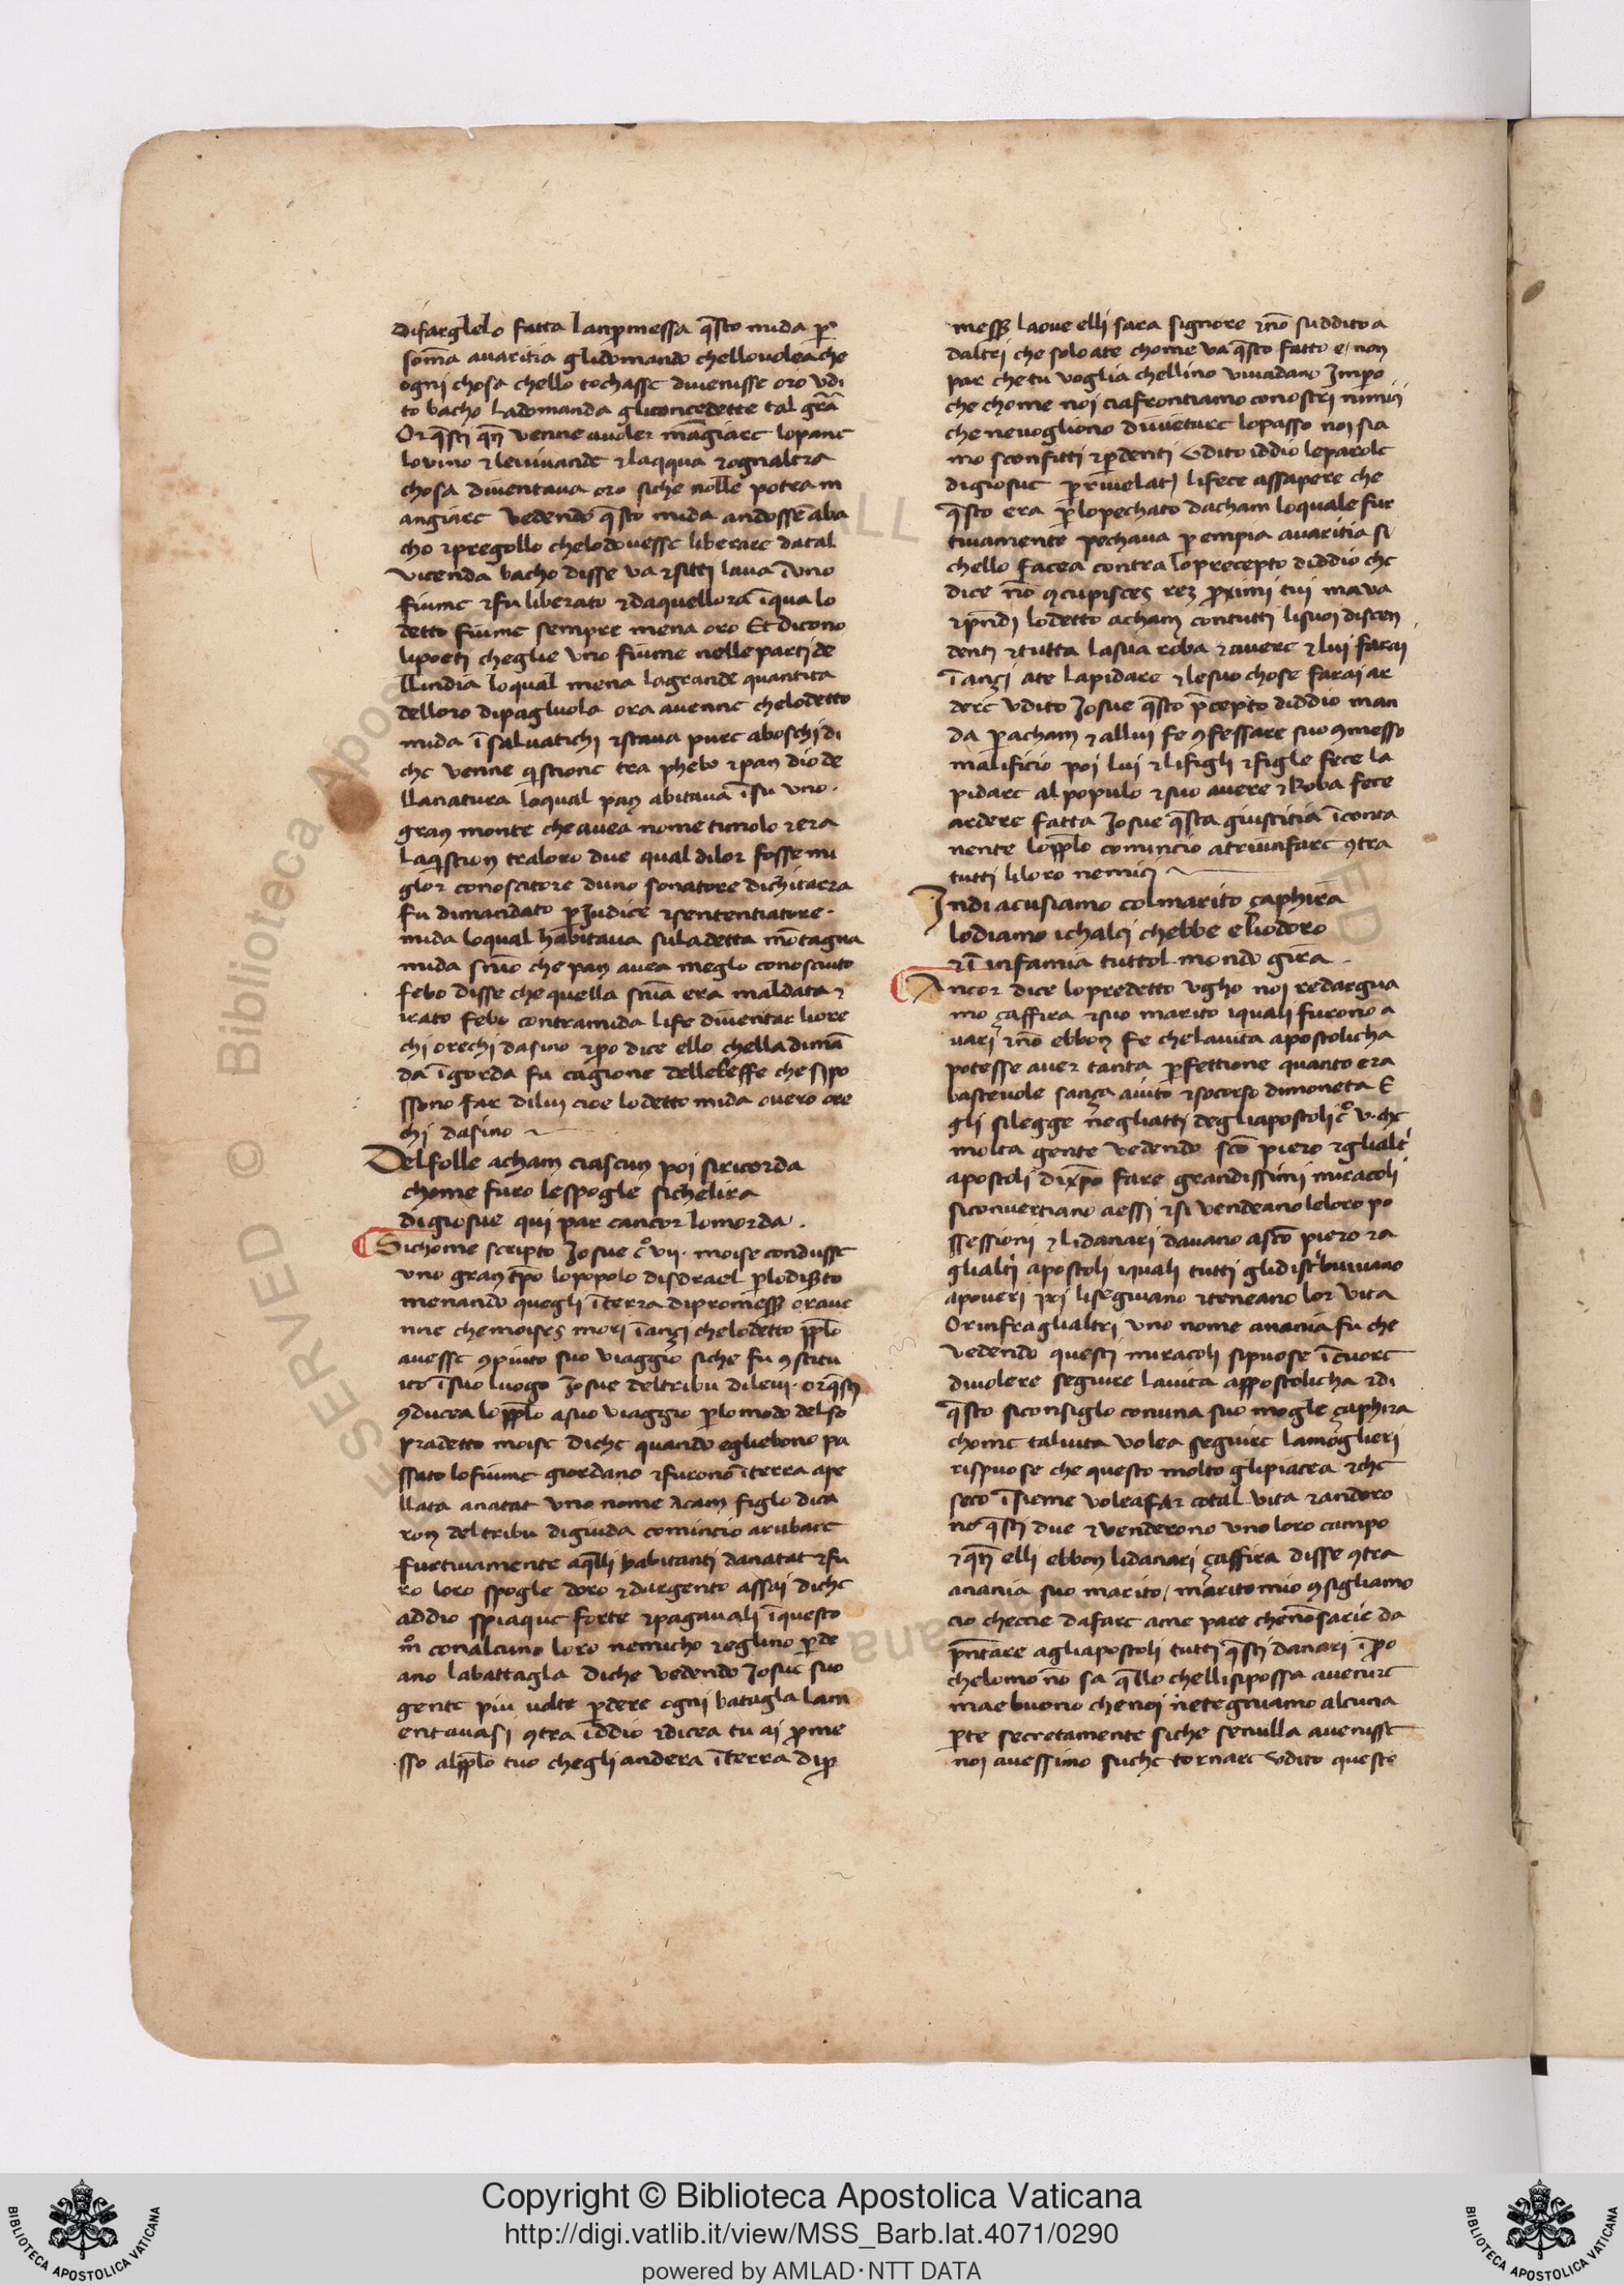 difarglielo fatta lanpromessa q̄sto mida p̄
som̄a auaritia glidomando chellouolea che
ogni chosa chello tochasse diuenisse oro vdi
to bacho ladomanda gliconcedette tal grā
Or q̄sti qn̄ venne auoler māgiare lopane
lo vino ⁊ leuiuande ⁊ laqqua ⁊ ognaltra
chosa diuentaua oro siche nolle potea m
angiare vedendo q̄sto mida andossē aba
cho ⁊ pregollo chelodouesse liberare datal
vicenda bacho disse va ⁊ sitti laua ī vno
fiume ⁊ fu liberato ⁊ daquellora ī qua lo
detto fiume sempre mena oro Et dicono
lipoeti cheglie vno fiume nelle parti de
llindia loqual mena lagrande quantita
delloro dipagluola ora auenne chelodetto
mida ī saluatichi ⁊ staua pure aboschi di
che venne q̄stione tra phebo ⁊ pan dio de
llanatura loqual pan abitaua ī su vno
gran monte che auea nome timolo ⁊ era
laq̄stion traloro due qual dilor fosse mi
glior conoscitore duno sonatore dichitarra
fu dimandato p̄ Judice ⁊ sententiatore
mida loqual habitaua suladetta mōtagna
mida sn̄tio che pan auea meglo conosciuto
febo disse che quella sn̄tia era maldata ⁊
irato febo contramida life diuentar liore
chi orechi dasino ⁊ p̄o dice ello chella dimā
da īgorda fu cagione dellebeffe che si po
ssono far dilui cioe lodetto mida ouero ore
chi dasino
Delfolle acham ciascun poi siricorda
chome furo lespogle sichelira
digiosue qui par cancor lomorda.
Sichome scripto Josue c̊ vii. moise condusse
vno gran tp̄o lopopolo disdrael p̄ lodisto
menando quegli ī terra dipromess̄ oraue
nne chemoises mori īanzi chelodetto pp̄lo
auesse 9piuto suo viaggio siche fu 9stitu
ito ī suo luogo Josue deltribu dileui. or q̄sti
9ducea lopp̄lo asuo viaggio p̄ lomodo delso
pradetto moise diche quando egliebono pa
ssato lofiume giordano ⁊ furono ī terra ape
llata anatat vno nome Acam figlo dica
ron deltribu digiuda comincio arubare
furtiuamente aq̄lli habitanti danatat ⁊ fu
ro loro spogle doro ⁊ dargento assai diche
addio spiaque forte ⁊ pagauali ī questo
m̊ conalcuno loro nemicho ⁊ eglino p̄de
ano labattagla diche vedendo Josue suo
gente piu uolte p̄dere ogni batagla lam
entauasi 9tra īddio ⁊ dicea tu ai p̄me
sso alpp̄lo tuo chegli andera ī terra dip̄
mess̄ laoue elli sara signore ⁊ nō suddito a
daltri che solo ate chome va q̄sto fatto e/ non
par che tu voglia chellino viuadano Impo
che chome noi ciafrontiamo conostri nimici
che neuogliono diuieture lopasso noi sia
mo sconfitti ⁊ p̄denti Vdito iddio leparole
digiosue p̄ riuelati lifece assapere che
q̄sto era p̄ lopechato dacham loquale fur
tiuamente pechaua p̄ empia auaritia si
chello facea contra loprecepto diddio che
dice nō 9cupisces rez p̄ximi tui ma va
⁊ pn̄di lodetto acham contutti lisuoi discen
denti ⁊ tutta lasua roba ⁊ auere ⁊ lui farai
īanzi ate lapidare ⁊ lesuo chose farai ar
dere vdito Josue q̄sto p̄cepto diddio man
da p̄ acham ⁊ allui fe 9fessare suo 9messo
malificio poi lui ⁊ lifigli ⁊ figle fece la
pidare al populo ⁊ suo auere ⁊ Roba fece
ardere fatta Josue q̄sta giustitia īconta
nente lopp̄lo comincio atriunfare 9tra
tutti liloro nemici
Indi acusiamo col marito çaphira
lodiamo ichalci chebbe eliodoro
⁊ ī infamia tuttol mondo gira
Ancor dice lopredetto vgho noi redargua
mo çaffira ⁊ suo marito iquali furono a
uari ⁊ nō ebbon fe chelauita apostolicha
potesse auer tanta p̄fettione quanto era
basteuole sança aiuto ⁊ socorso dimoneta E
gli silegge negliatti degliapostoli c̊ v. che
molta gente vedendo sc̄o piero ⁊ glialt'
apostoli dixp̄o fare grandissimi miracoli
siconuertiano aessi ⁊ si vendeano leloro po
ssessioni ⁊ lidanari dauano asc̄o piero ⁊ a
glialtri apostoli iquali tutti glidist'buiuano
apoueri poi liseguiuano ⁊ teneano lor vita
Orinfraglialtri vno nome anania fu che
vedendo questi miracoli sipuose ī cuore
diuolere seguire lauita appostolicha ⁊ di
q̄sto siconsiglo conuna suo mogle çaphira
chome taluita volea seguire lamoglieri
rispuose che questo molto glipiacea ⁊ che
seco īsieme volea far cotal vita ⁊ andoro
no q̄sti due ⁊ venderono vno loro campo
⁊ qn̄ elli ebbon lidanari çaffira disse 9tra
anania suo marito/ marito mio 9sigliamo
cio checcie dafare ame pare chenōsarie da
pn̄tare agliapostoli tutti q̄sti danari īp̄o
chelomo nō sa q̄llo chellisipossa auenire
mae buono chenoi netegniamo alcuna
p̄te secretamente siche senulla auenisse
noi auessimo suche tornare Vdito questo
Copyright © Biblioteca Apostolica Vaticana
http://digi.vatlib.it/view/MSS_Barb.lat.4071/0290
powered by AMLAD·NTT DATA
BIBLIOTECA APOSTOLICA VATICANA
BIBLIOTECA APOSTOLICA VATICANA